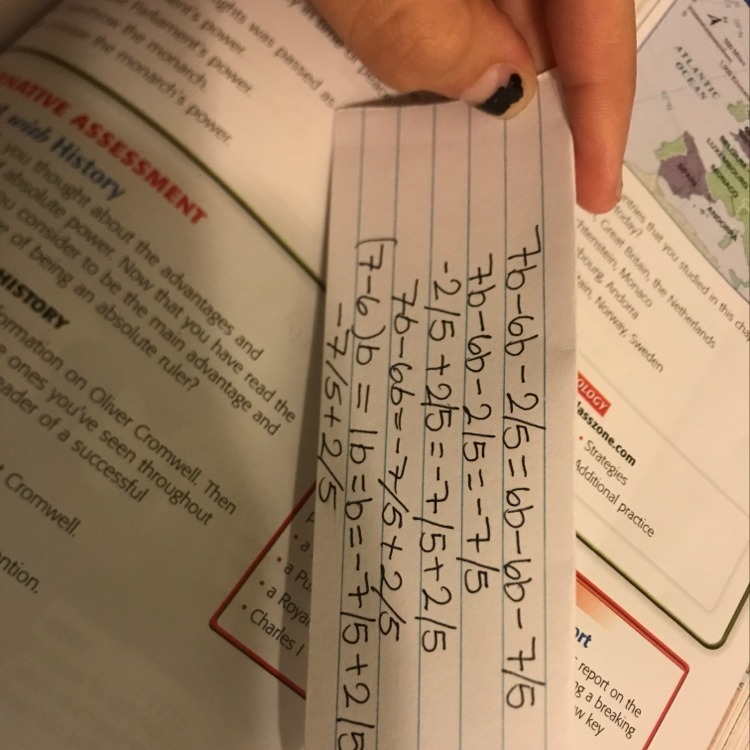 7b-6b-2/5=6b-6b-7/5
7b-6b-2/5=-7/5
-2/5+2/5=-7/5+2/5
7b-6b=-7/5+2/5
(7-6)b=1b=b=-7/5+2/5
-7/5+2/5
rights was passed as
ent's power.
Parliament's power.
row the monarch.
the monarch's power.
NATIVE ASSESSMENT
with History
you thought about the advantages and
absolute power. Now that you have read the
you consider to be the main advantage and
e of being an absolute ruler?
HISTORY
formation on Oliver Cromwell. Then
e ones you've seen throughout
eader of a successful
Cromwell.
ntion.
• a
• a Pu
• a Roya
• Charles I
ATLANTIC
OCEAN
SPAIN
BELGIUM
LUXEMBOURG
MONACO
ANDORRA
ntries that you studied in this cha
today?
Great Britain, the Netherlands
htenstein, Monaco
bourg, Andorra
ain, Norway, Sweden
OLOGY
lasszone.com
• Strategies
Additional practice
ort
report on the
ng a breaking
w key